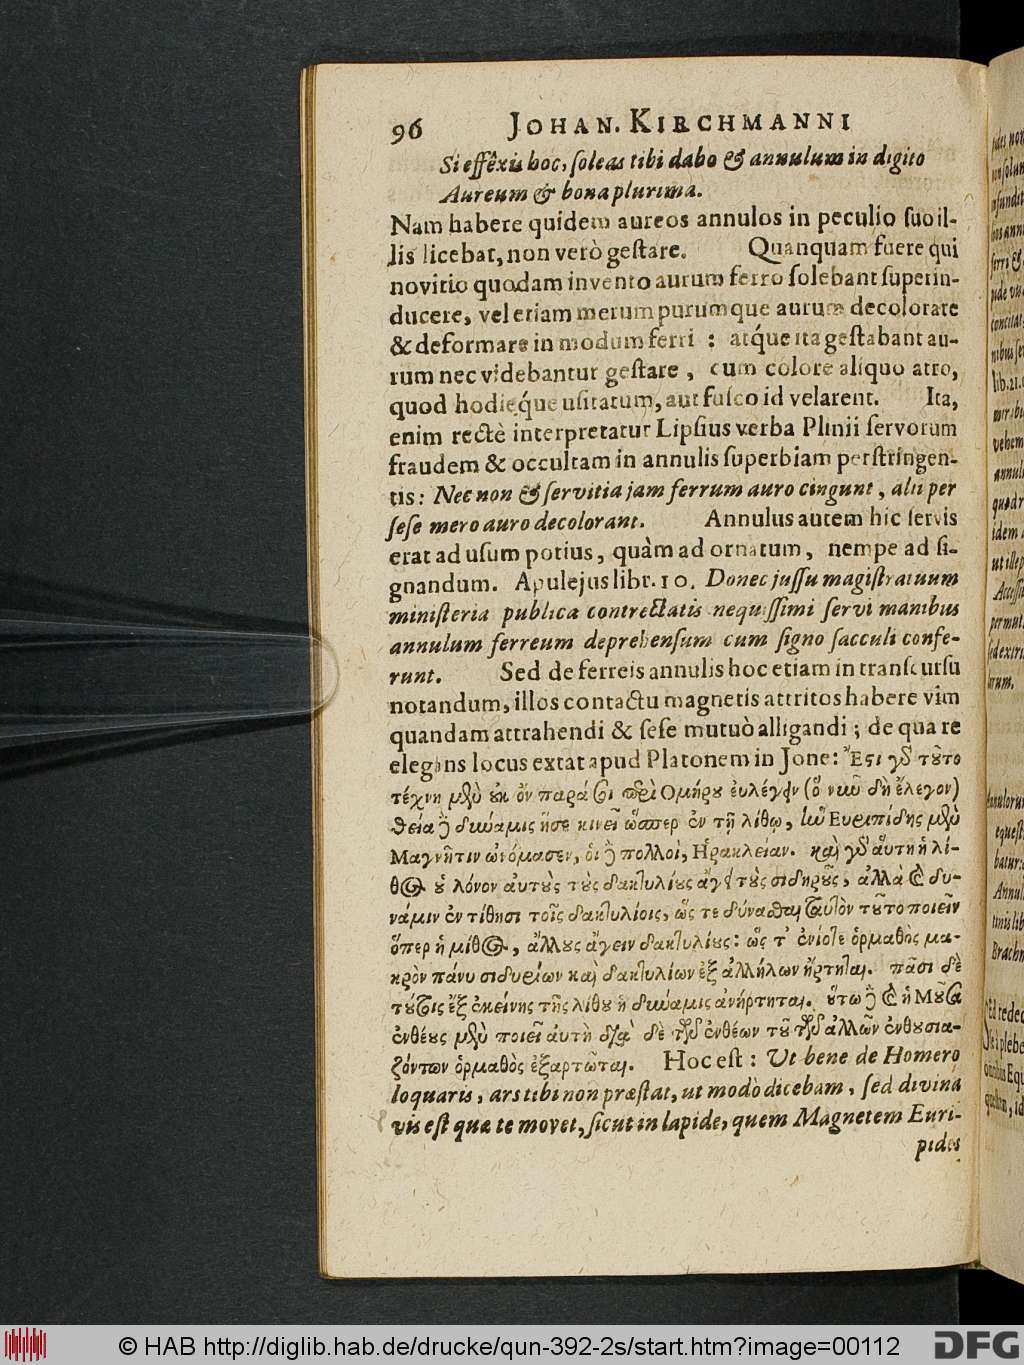 96 JOHAN. KIRCHMANNI
Si effêxis hoc, ſoleas tibi dabo & annulum in digito
Aureum & bona plurima.
Nam habere quidem aureos annulos in peculio ſuo il-
lis licebat, non verò geſtare. Quanquam fuere qui
novitio quodam invento aurum ferro ſolebant ſuperin-
ducere, vel etiam merum purumque aurum decolorare
& deformare in modum ferri : atq́ue ita geſtabant au-
rum nec videbantur geſtare , cum colore aliquo atro,
quod hodieq́ue uſitatum, aut fuſco id velarent. Ita,
enim rectè interpretatur Lipſius verba Plinii ſervorum
fraudem & occultam in annulis ſuperbiam perſtringen-
tis: Nec non & ſervitia jam ferrum auro cingunt, alii per
ſeſe mero auro decolorant. Annulus autem hic ſervis
erat ad uſum potius, quàm ad ornatum, nempe ad ſi-
gnandum. Apulejus libr. 10. Donec juſſu magiſtratuum
miniſteria publica contrectatis nequiſſimi ſervi manibus
annulum ferreum deprehenſum cum ſigno ſacculi confe-
runt. Sed de ferreis annulis hoc etiam in transcurſu
notandum, illos contactu magnetis attritos habere vim
quandam attrahendi & ſeſe mutuò alligandi ; de qua re
elegans locus extat apud Platonem in Jone: Ἔςι γδ τȣ̃το
τέχνη μϟὺ ȣκ ὂν παρά σοι περὶ Ὁμήρȣ ἐυλέγειν (ὅ νιωῦ δὴ ἔλεγον)
θεία ἢ διωύαμις ἥσε κινεῖ ὥσπερ ἐν τῇ λίθῳ, ἱωῦ Ευριπίδης μϟὺ
Μαγνῆτιν ὠνόμασεν, ὁι ἢ πολλοὶ, Ἡρακλείαν. καὶ γδ αὕτη ἡ λί-
θος ȣ̓ λόνον αὐτȣ̀ς τȣ̀ς δακτυλίȣς ἄγει τȣ̀ς σιδηρȣ̃ς, ἀλλὰ καὶ δυ-
νάμιν ἐν τίθησι τοῖς δακτυλίοις, ὥς τε δύναθαι ταυτὸν τȣ̃το ποιεῖν
ὅπερ ἡ μίθος, ἄλλȣς ἄγειν δακτυλίȣς: ὥς τ᾽ ἐνίοτε ὁρμαθὸς μα-
κρὸν πάνυ σιδυρίων καὶ δακτυλίων ἐξ ἀλλήλων ἤρτηται. πᾶσι δὲ
τȣ́τοις ἔξ ἐκείνης τῆς λίθȣ ἡ διωύαμις ἀνήρτηται. ȣ̔́τω ἢ καὶ ἡ Μȣ͂σα
ἐνθέȣς μϟὺ ποιεῖ ἀυτὴ διὰ δὲ τῶν ἐνθέων τȣ̃ τῶν ἀλλῶν ἐνθȣσια-
ζόντων ὁρμαθὸς ἐξαρτῶται. Hoc eſt : Ut bene de Homero
loquaris, ars tibi non præſtat, ut modò dicebam, ſed divina
vis eſt quæ te movet, ſicut in lapide, quem Magnetem Euri-
pides
© HAB http://diglib.hab.de/drucke/qun-392-2s/start.htm?image=00112
DFG